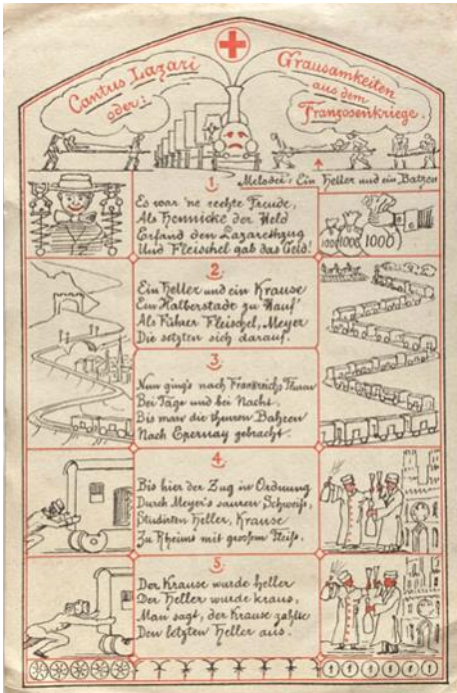 Cantus Lazari
oder:
Grausamkeiten
aus dem
Franzosenkriege.
Melodei: Ein Heller und ein Batzen
1.
Es war 'ne rechte Freude,
Als Hennicke der Held
Erfand den Lazarethzug
Und Fleischel gab das Geld!
1000 1000 1000
2
Ein Heller und ein Krause
Ein Halberstadt zu Hauf
Als Führer Fleischel, Meyer
Die setzten sich darauf.
3
Nun ging's nach Frankreichs
Bei Tage und bei Nacht.
Bis man die theuren Bahren
Nach Epernay gebracht.
4
Bis hier der Zug in Ordnung
Durch Meyer's sauren Schweiß,
Studirten Heller, Krause
Zu Rheims mit grossem Fleiß.
5
Der Krause wurde heller
Der Heller wurde kraus,
Man sagt, der Krause zahlte
Den letzten Heller aus.